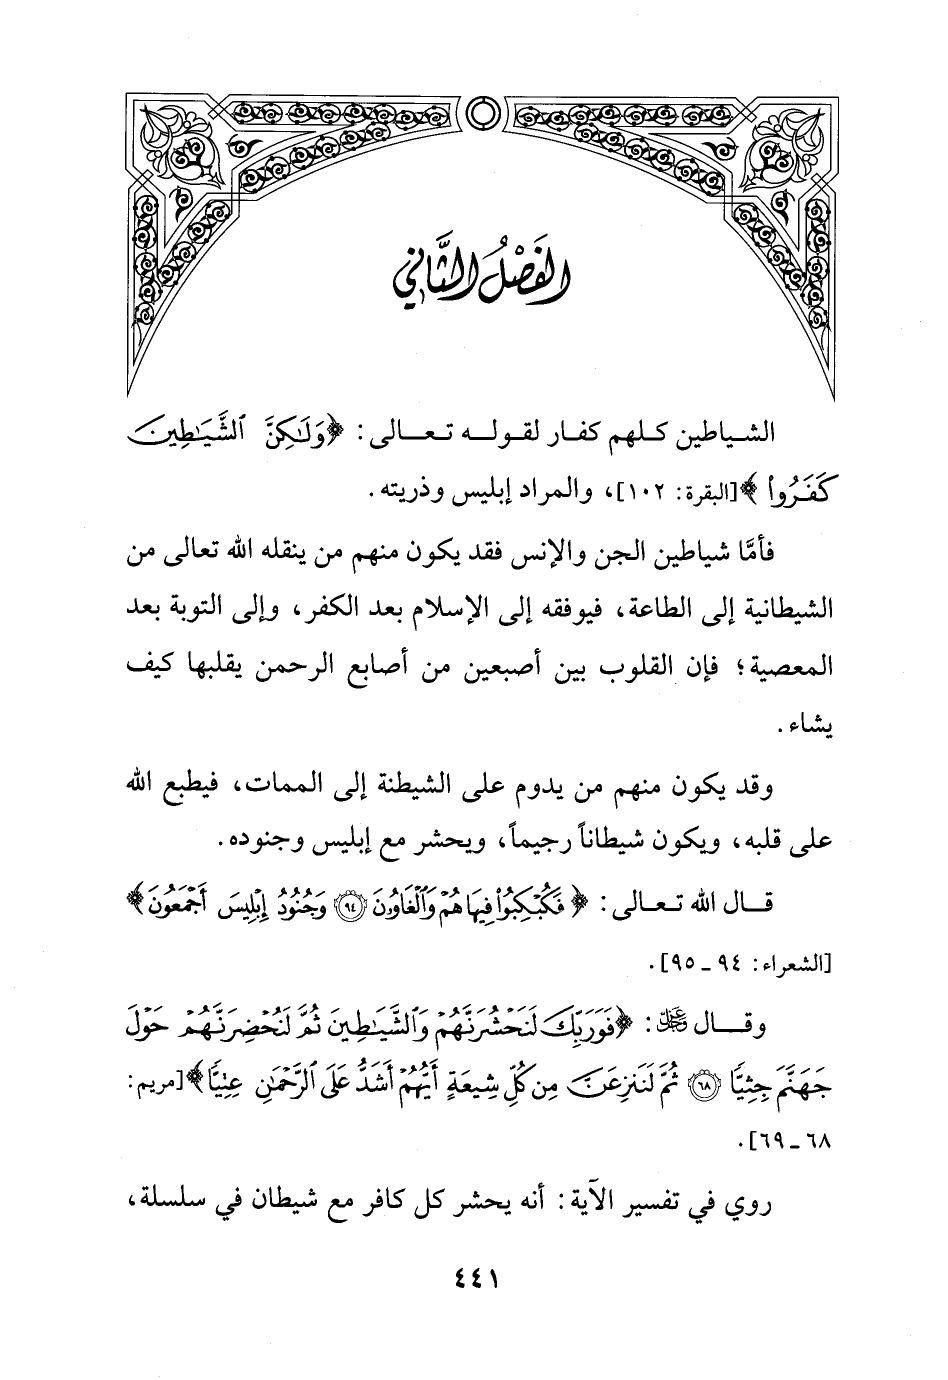 الفَصْلُ الثَّانِي
الشياطين كلهم كفار لقوله تعالى: ﴿وَلَٰكِنَّ ٱلشَّيَٰطِينَ
كَفَرُوا۟﴾ [البقرة: ١٠٢]، والمراد إبليس وذريته.
فأمَّا شياطين الجن والإنس فقد يكون منهم من ينقله الله تعالى من
الشيطانية إلى الطاعة، فيوفقه إلى الإسلام بعد الكفر، وإلى التوبة بعد
المعصية؛ فإن القلوب بين أصبعين من أصابع الرحمن يقلبها كيف
يشاء.
وقد يكون منهم من يدوم على الشيطنة إلى الممات، فيطبع الله
على قلبه، ويكون شيطاناً رجيماً، ويحشر مع إبليس وجنوده.
قال الله تعالى: ﴿فَكُبْكِبُوا۟ فِيهَا هُمْ وَٱلْغَاوُۥنَ ٩٤ وَجُنُودُ إِبْلِيسَ أَجْمَعُونَ﴾
[الشعراء: ٩٤ ـ ٩٥].
وقال ﷻ: ﴿فَوَرَبِّكَ لَنَحْشُرَنَّهُمْ وَٱلشَّيَٰطِينَ ثُمَّ لَنُحْضِرَنَّهُمْ حَوْلَ
جَهَنَّمَ جِثِيًّا ٦٨ ثُمَّ لَنَنزِعَنَّ مِن كُلِّ شِيعَةٍ أَيُّهُمْ أَشَدُّ عَلَى ٱلرَّحْمَٰنِ عِتِيًّا﴾ [مريم:
٦٨ ـ ٦٩].
روي في تفسير الآية: أنه يحشر كل كافر مع شيطان في سلسلة،
٤٤١